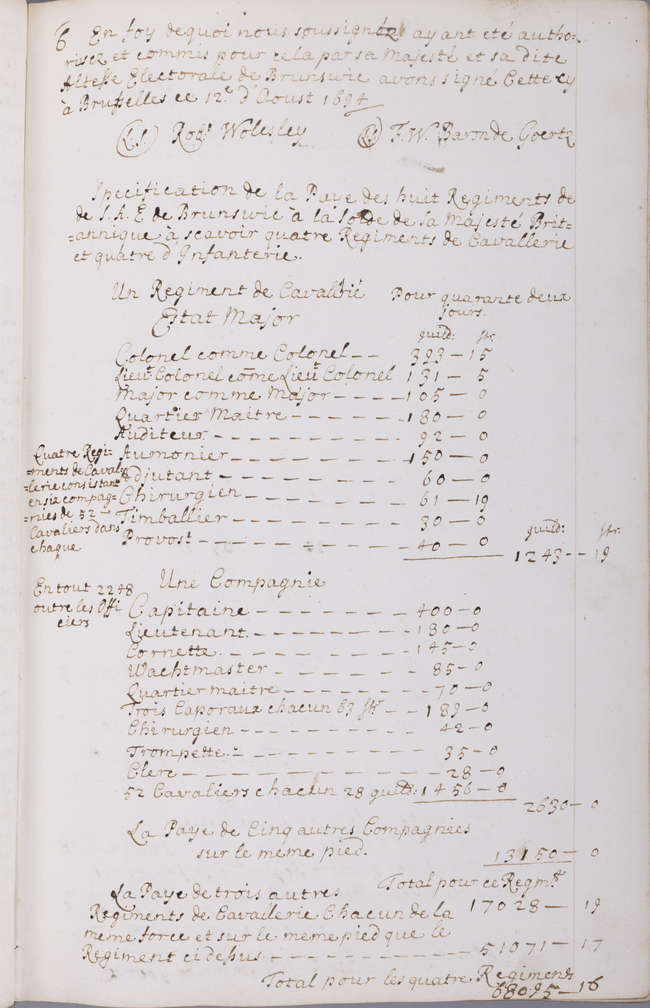 6 En foy dequoi nous soussignéz ayant eté autho-
risez et commis pour cela par sa Majesté et sa dite
Altesse Electorale de Brunswic avons signé Cette cy
à Brusselles ce 12e d'Aoust 1694
(LS) Robt Wolesley (LS) F. W. Baron de Goertz
Specification de la Paye des huit Regiments de
de S. A. E de Brunswic à la solde de sa Majesté Brit=
=annique à scavoir quatre Regiments de Cavallerie
et quatre d'Infanterie.
Un Regiment de Cavallrie Pour quarante deux
Jours.
Estat Major
guild: str.
Colonel comme Colonel - - 393 - 15
Lieut Colonel come Lieut Colonel 131 - 5
Major comme Major - - - - 105 - 0
Quartier Maitre - - - - - - 180 - 0
Auditeur - - - - - - - - - 92 - 0
Aumonier - - - - - - - - 150 - 0
Adjutant - - - - - - - - - 60 - 0
Chirurgien - - - - - - - - 61 - 19
Timballier - - - - - - - - 30 - 0
Provost - - - - - - - - - - 40 - 0
guild: str.
1243 - 19
Quatre Regi-
=ments de Caval
=lerie consistant
en six compag-
=nies de 52 -
Cavaliers dans
chaque
En tout 2248
outre les Offi
ciers
Une Compagnie
Capitaine - - - - - - - 400 - 0
Lieutenant - - - - - - - 180 - 0
Cornette - - - - - - - - 145 - 0
Wachtmaster - - - - - - 85 - 0
Quartier maitre - - - - - 70 - 0
Trois Caporaux chacun 63 str - - 189 - 0
Chirurgien - - - - - - - 42 - 0
Trompette - - - - - - - 35 - 0
Clerc - - - - - - - - - - 28 - 0
52 Cavaliers chacun 28 guild: 1456 - 0
2630 - 0
La Paye de Cinq autres Compagnies
sur le meme pied. 13150 - 0
Total pour ce Regmt
17028 - 19
La Paye de trois autres
Regiments de Cavallerie Chacun de la
meme force et sur le meme pied que le
Regiment ci dessus - - - - - - - - 51071 - 17
Total pour les quatre Regiments
68095 - 16